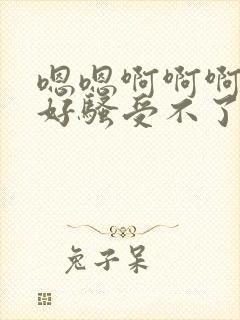 嗯嗯啊啊啊
好骚受不了
兔子呆